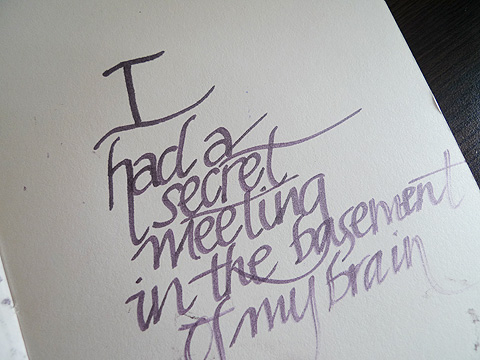 I
had a
secret
meeting
in the basement
of my brain